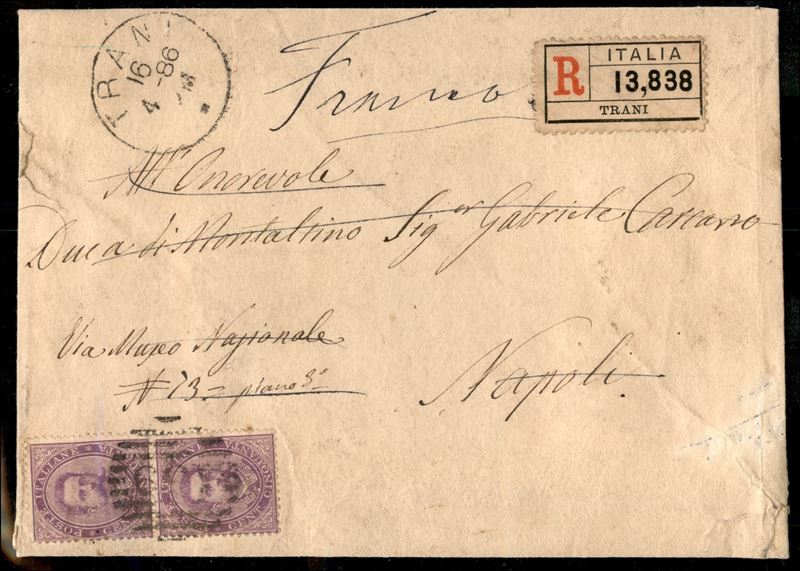 TRANI
16
4 -86
7 M
Franco
R
ITALIA
13,838
TRANI
All' Onorevole
Duca di Montaltino Sig.or Gabriele Carcano
Via Museo Nazionale
N. 73 = piano 3°
Napoli
POSTE ITALIANE
CENT
POSTE ITALIANE
CENT. CINQUANTA